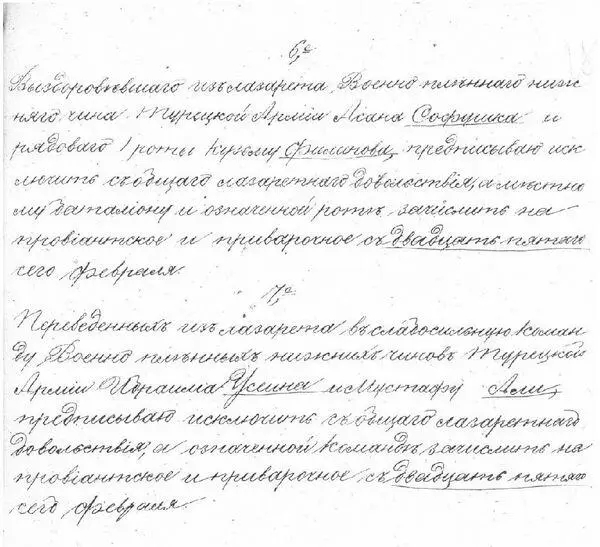 6,е
Выздоровѣвшаго изъ лазарета, Военно плѣннаго ниж-
няго чина Турецкой Арміи Асана Софушка и
рядоваго 1 роты Кузьму Филинова, предписываю иск-
лючить съ общаго лазаретнаго довольствія, а мѣстно
му баталіону и означенной ротѣ зачислить на
провіантское и приварочное съ двадцать пятаго
сего февраля.
7,е
Переведенныхъ изъ лазарета въ слабосильную Коман-
ду, Военно плѣнныхъ нижнихъ чиновъ Турецкой
Арміи Ибраима Усеина и Мустафу Али,
предписываю исключить съ общаго лазаретнаго
довольствія, а означенной Командѣ зачислить на
провіантское и приварочное съ двадцать пятаго
сего февраля.